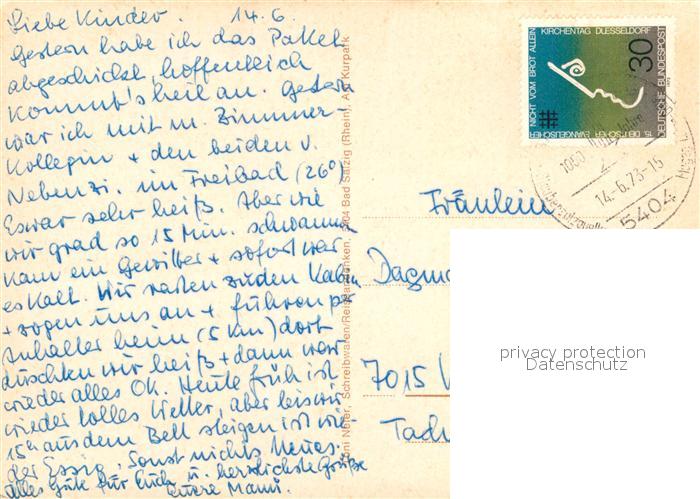 Liebe Kinder. 14.6.
gestern habe ich das Paket
abgeschickt, hoffentlich
kommt's heil an. Gestern
war ich mit m. Zimmer-
kollegin + den beiden v.
Nebenzi. im Freibad (26°)
Es war sehr heiß. Aber wie
wir grad so 15 Min. schwammen
kam ein Gewitter + sofort war
es kalt. Wir rasten zu den Kabin
+ zogen uns an + fuhren per
Anhalter heim (5 km) dort
duschten wir heiß + dann war
wieder alles OK. Heute früh ist
wieder tolles Wetter, aber bis wir
15h aus dem Bett steigen ist wie-
der Essig. Sonst nichts Neues.
Alles Gute für Euch u. herzlichste Grüße
Eure Mami.
Toni Neier, Schreibwaren/Reiseandenken, 5404 Bad Salzig (Rhein), Am Kurpark
15. DEUTSCHER EVANGELISCHER
NICHT VOM BROT ALLEIN
KIRCHENTAG DUESSELDORF
DEUTSCHE BUNDESPOST
30
14.-6.73-15
5404
Fräulein
Dagma
7015
Tach
privacy protection
Datenschutz